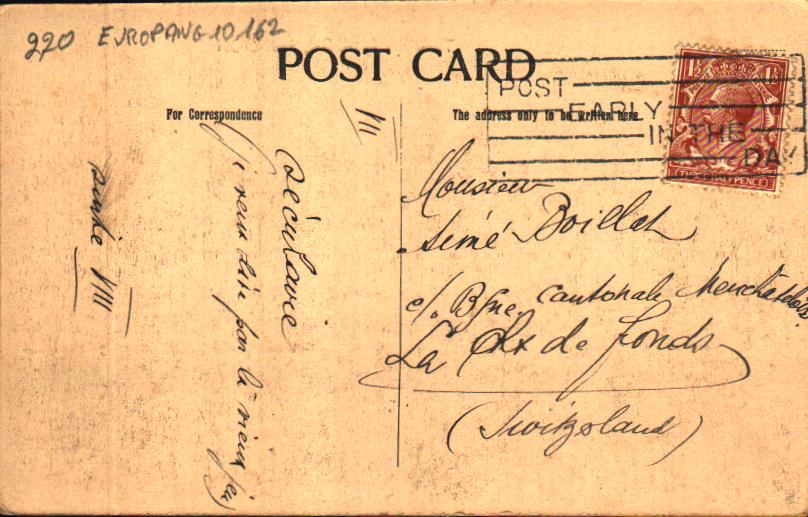 220 EUROPANG 10.162
POST CARD
For Correspondence
The address only to be written here
POST
EARLY
IN THE
DAY
1½ 1½
THREE HALF PENCE
VII
séculaire
(Je veux dire par là vieux
suite VIII
Monsieur
Aimé Boillat
c/. Bque Cantonale Neuchâteloise
La Chx de fonds
(Switzerland)